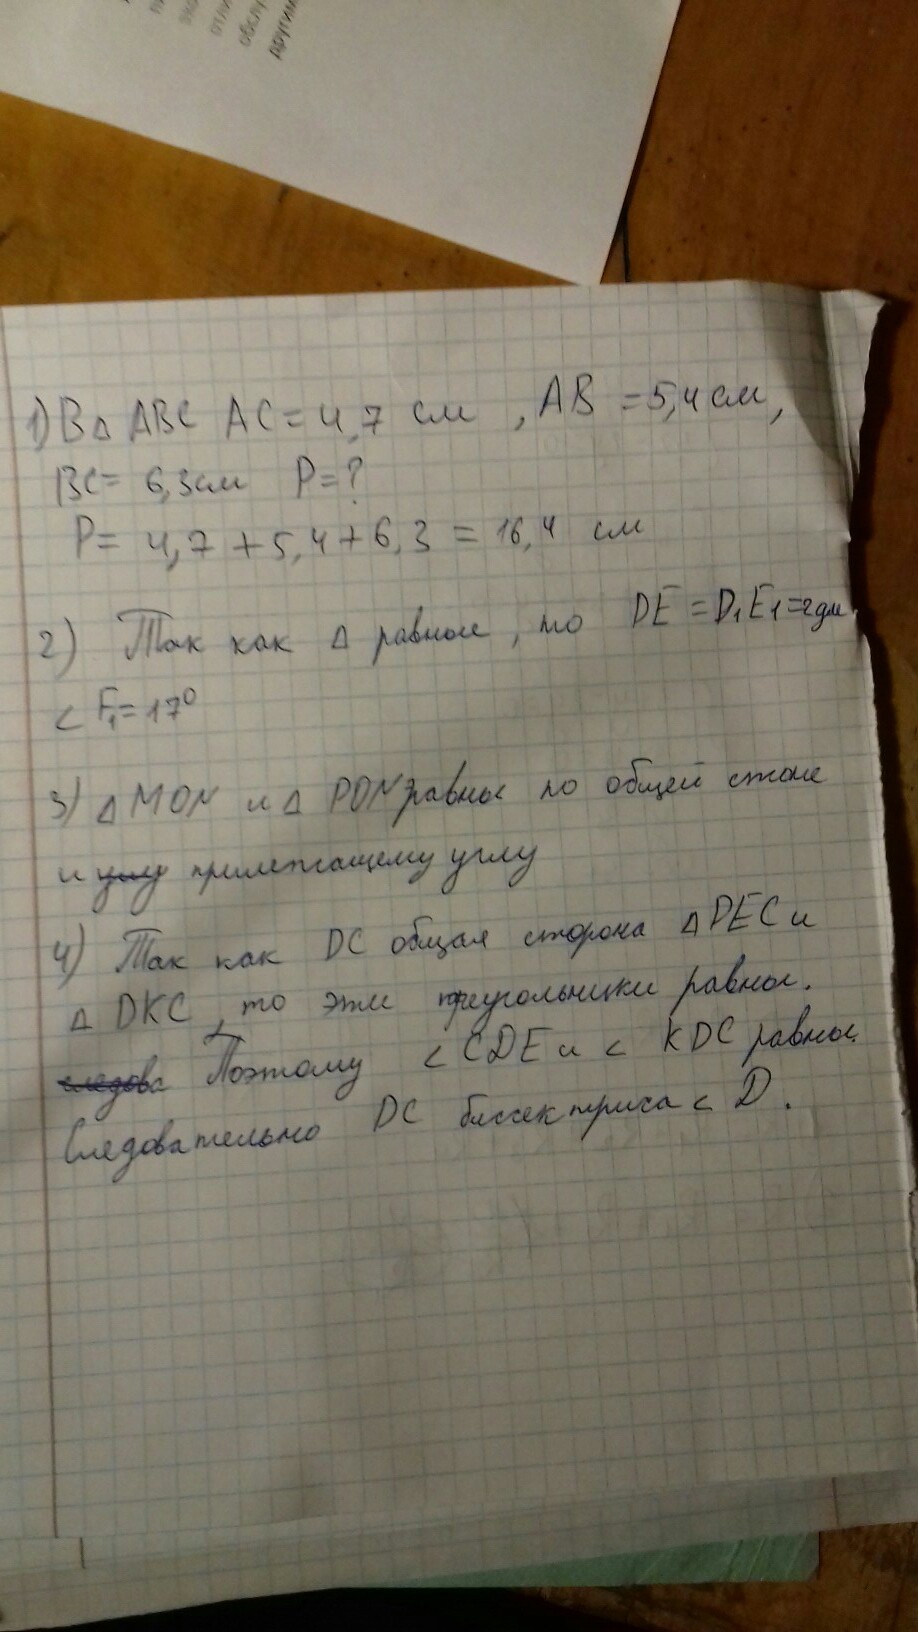 другим
обслу
1) В△ ABC AC = 4,7 см , AB = 5,4 см,
BC = 6,3см P = ?
P = 4,7 + 5,4 + 6,3 = 16,4 см
2) Так как △ равные, то DE = D₁E₁ = 2дм
∠ F₁ = 17⁰
3) △ MON и △ PON равны по общей стоне
и прилежащему углу
4) Так как DC общая сторона △ DEC и
△ DKC, то эти треугольники равны.
Поэтому ∠ CDE и ∠ KDC равны.
Следовательно DC биссектриса ∠ D.